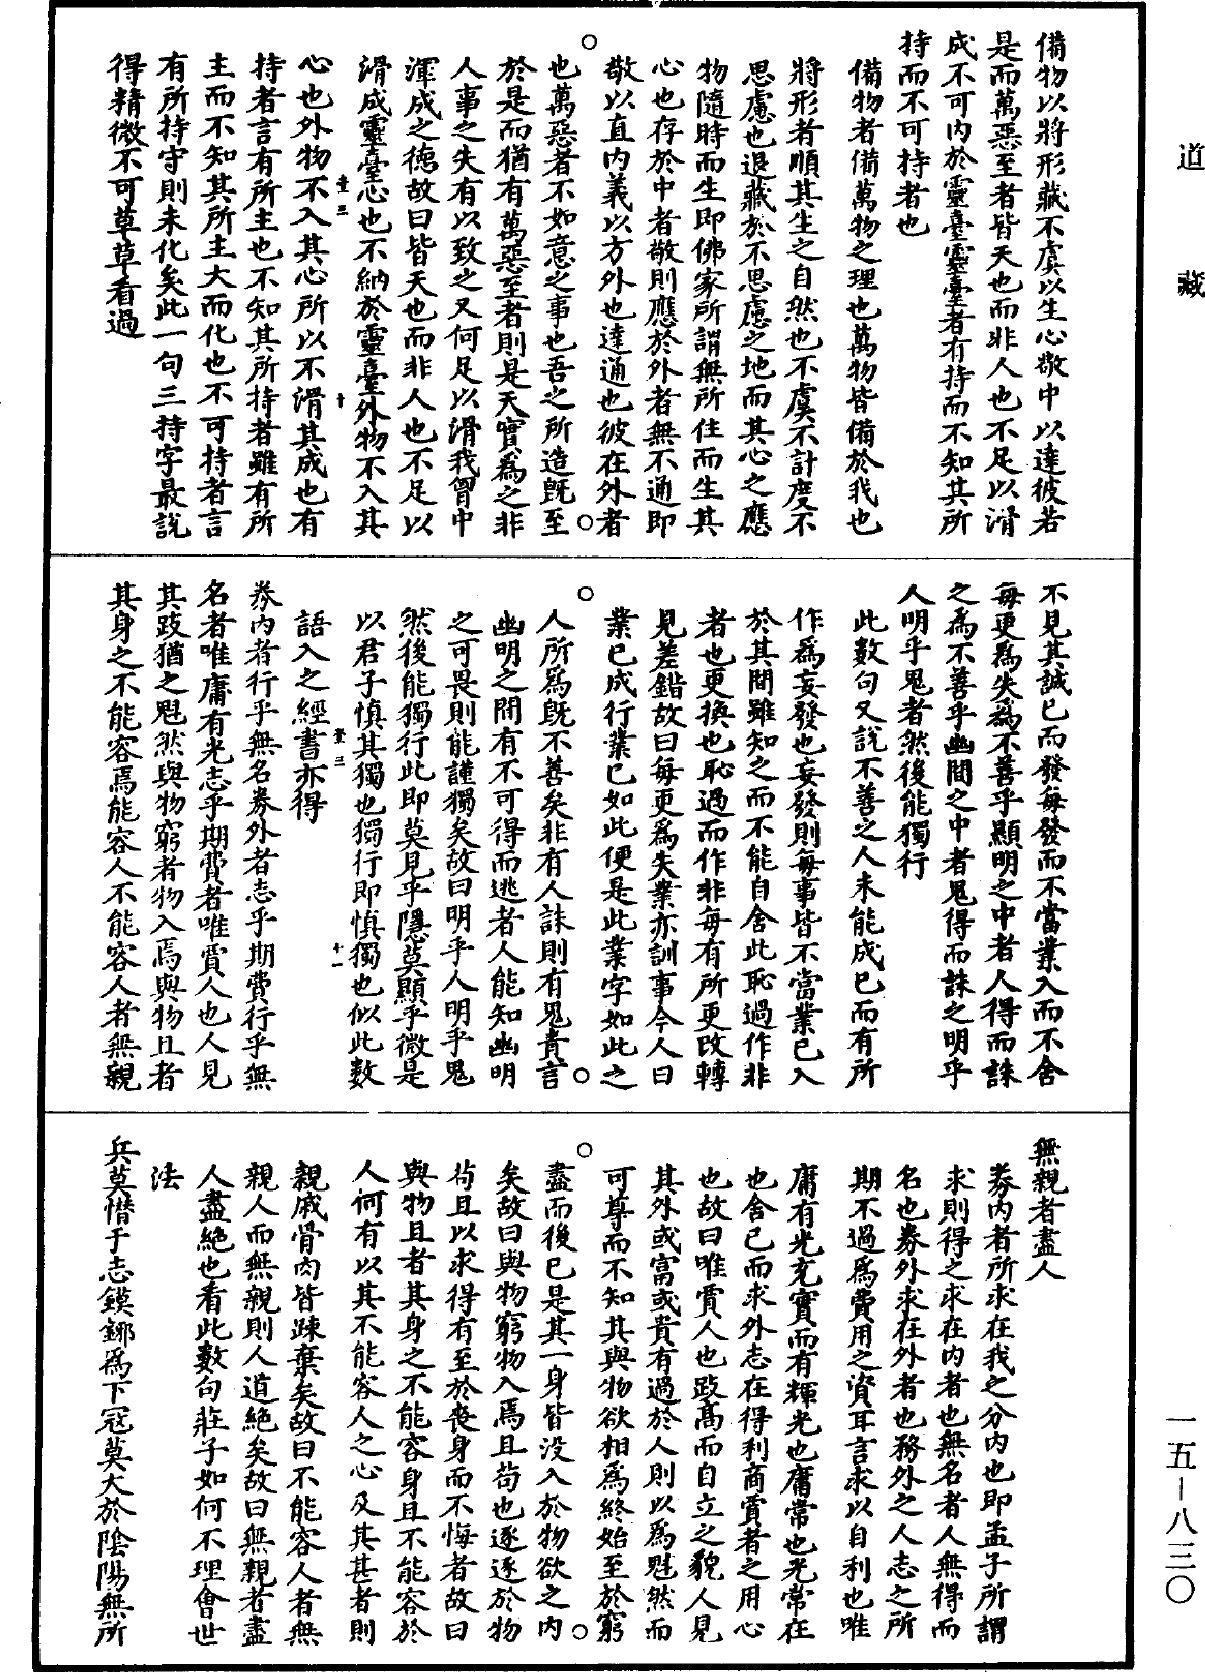 道藏
備物以將形藏不虞以生心敬中以達彼若
是而萬惡至者皆天也而非人也不足以滑
成不可內於靈臺靈臺者有持而不知其所
持而不可持者也
備物者備萬物之理也萬物皆備於我也
將形者順其生之自然也不虞不計度不
思慮也退藏於不思慮之地而其心之應
物隨時而生即佛家所謂無所住而生其
心也存於中者敬則應於外者無不通即
敬以直內義以方外也達通也彼在外者
也萬惡者不如意之事也吾之所造旣至
於是而猶有萬惡至者則是天實爲之非
人事之失有以致之又何足以滑我胷中
渾成之德故曰皆天也而非人也不足以
滑成靈臺心也不納於靈臺外物不入其
心也外物不入其心所以不滑其成也有
持者言有所主也不知其所持者雖有所
主而不知其所主大而化也不可持者言
有所持守則未化矣此一句三持字最說
得精微不可草草看過
不見其誠已而發每發而不當業入而不舍
每更爲失爲不善乎顯明之中者人得而誅
之爲不善乎幽間之中者鬼得而誅之明乎
人明乎鬼者然後能獨行
此數句又說不善之人未能成已而有所
作爲妄發也妄發則每事皆不當業已入
於其間雖知之而不能自舍此恥過作非
者也更換也恥過而作非每有所更改轉
見差錯故曰每更爲失業亦訓事今人曰
業已成行業已如此便是此業字如此之
人所爲旣不善矣非有人誅則有鬼責言
幽明之間有不可得而逃者人能知幽明
之可畏則能謹獨矣故曰明乎人明乎鬼
然後能獨行此即莫見乎隱莫顯乎微是
以君子慎其獨也獨行即慎獨也似此數
語入之經書亦得
券內者行乎無名券外者志乎期費行乎無
名者唯庸有光志乎期費者唯賈人也人見
其跂猶之魁然與物窮者物入焉與物且者
其身之不能容焉能容人不能容人者無親
無親者盡人
券內者所求在我之分內也即孟子所謂
求則得之求在內者也無名者人無得而
名也券外求在外者也務外之人志之所
期不過爲費用之資耳言求以自利也唯
庸有光充實而有輝光也庸常也光常在
也舍已而求外志在得利商賈者之用心
也故曰唯賈人也跂高而自立之貌人見
其外或富或貴有過於人則以爲魁然而
可尊而不知其與物欲相爲終始至於窮
盡而後已是其一身皆没入於物欲之內
矣故曰與物窮物入焉且苟也逐逐於物
茍且以求得有至於喪身而不悔者故曰
與物且者其身之不能容身且不能容於
人何有以其不能容人之心及其甚者則
親戚骨肉皆踈棄矣故曰不能容人者無
親人而無親則人道絕矣故曰無親者盡
人盡絕也看此數句莊子如何不理會世
法
兵莫憯于志鏌鋣爲下寇莫大於陰陽無所
一五－八三〇